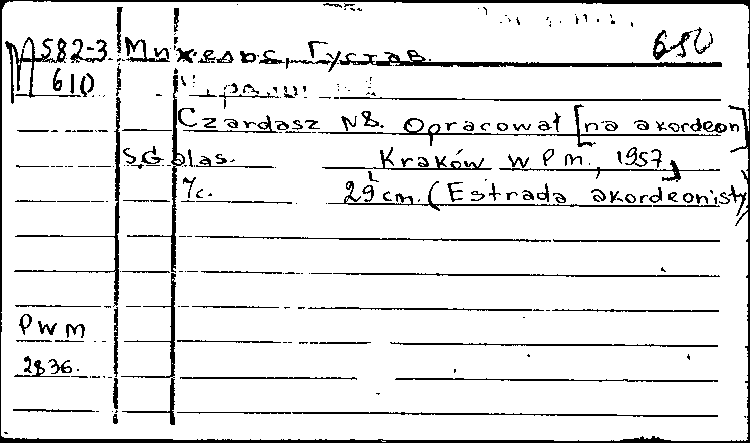 М582-3 Михельс, Густав. 650
610
Czardasz N8. Opracował [na akordeon]
S. Golas. Kraków W P m., 1957,
7c. 29 cm. (Estrada akordeonisty)
PWM
2836.